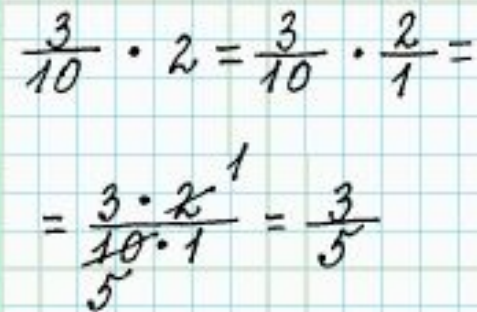 3/10 · 2 = 3/10 · 2/1 =
= 3 · 2̶ 1 / 1̶0̶ 5 · 1 = 3/5